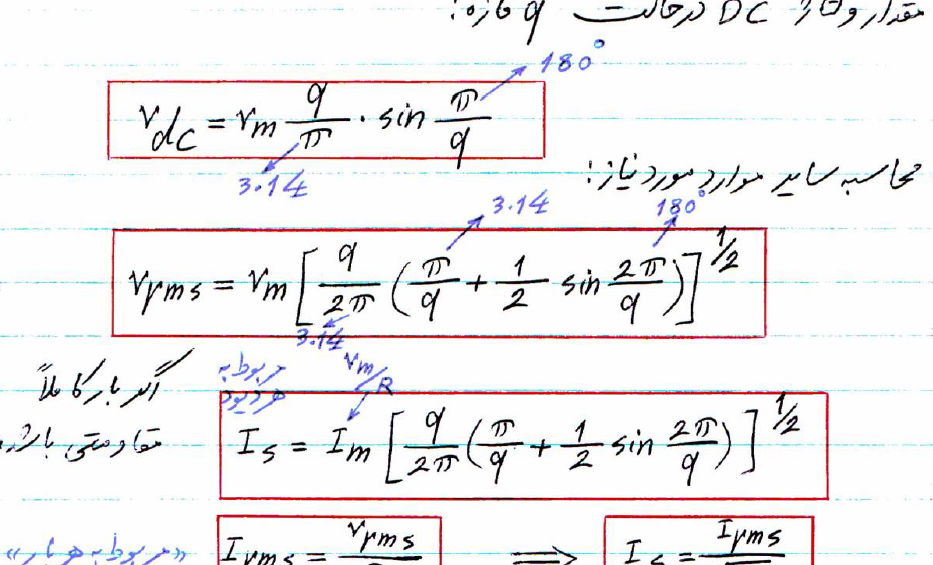 مقدار ولتاژ DC در حالت q فازه:
180°
V_dc = V_m q/π · sin π/q
3.14
محاسبه سایر موارد مورد نیاز:
3.14 180°
V_rms = V_m [ q/2π ( π/q + 1/2 sin 2π/q ) ]^1/2
3.14
اگر بار کاملاً مقاومتی باشد
مربوط به هر دیود
V_m/R
I_s = I_m [ q/2π ( π/q + 1/2 sin 2π/q ) ]^1/2
«مربوط به هر بار» I_rms = V_rms ⟹ I_s = I_rms